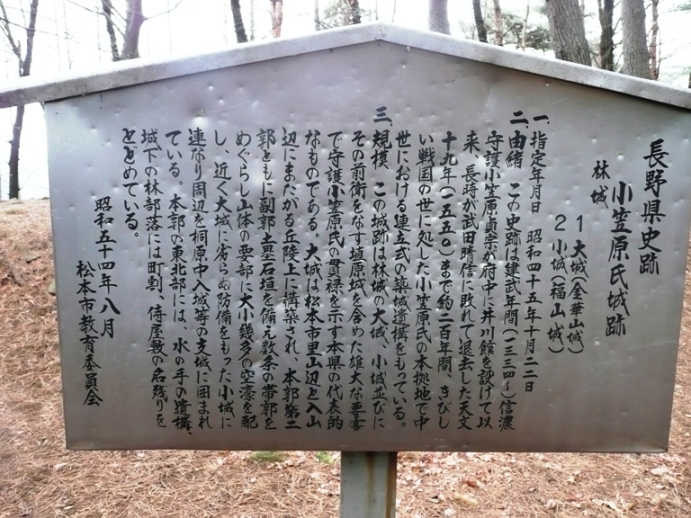 長野県史跡
小笠原氏城跡
林城
1 大城(金華山城)
2 小城(福山城)
一、指定年月日 昭和四十五年十月二二日
二、由緒 この史跡は建武年間(一三三四~)信濃
守護小笠原貞宗が府中に井川館を設けて以
来、長時が武田晴信に敗れて退去した天文
十九年(一五五〇)まで約二百年間、きびし
い戦国の世に処した小笠原氏の本拠地で中
世における連立式の築城遺構をもっている。
三、規模 この城跡は林城の大城、小城並びに
その前衛をなす埴原城を含めた雄大な要害
で守護小笠原氏の貫禄を示す本県の代表的
なものである。大城は松本市里山辺と入山
辺にまたがる丘陵上に構築され、本郭第二
郭ともに副郭土塁石垣を備え数条の帯郭を
めぐらし山体の要部に大小幾多の空濠を配
し、近く大城に劣らぬ防備をもった小城に
連なり周辺を桐原中入城等の支城に囲まれ
ている。本郭の東北部には、水の手の遺構、
城下の林部落には町割、侍屋敷の名残りを
とどめている。
昭和五十四年八月
松本市教育委員会